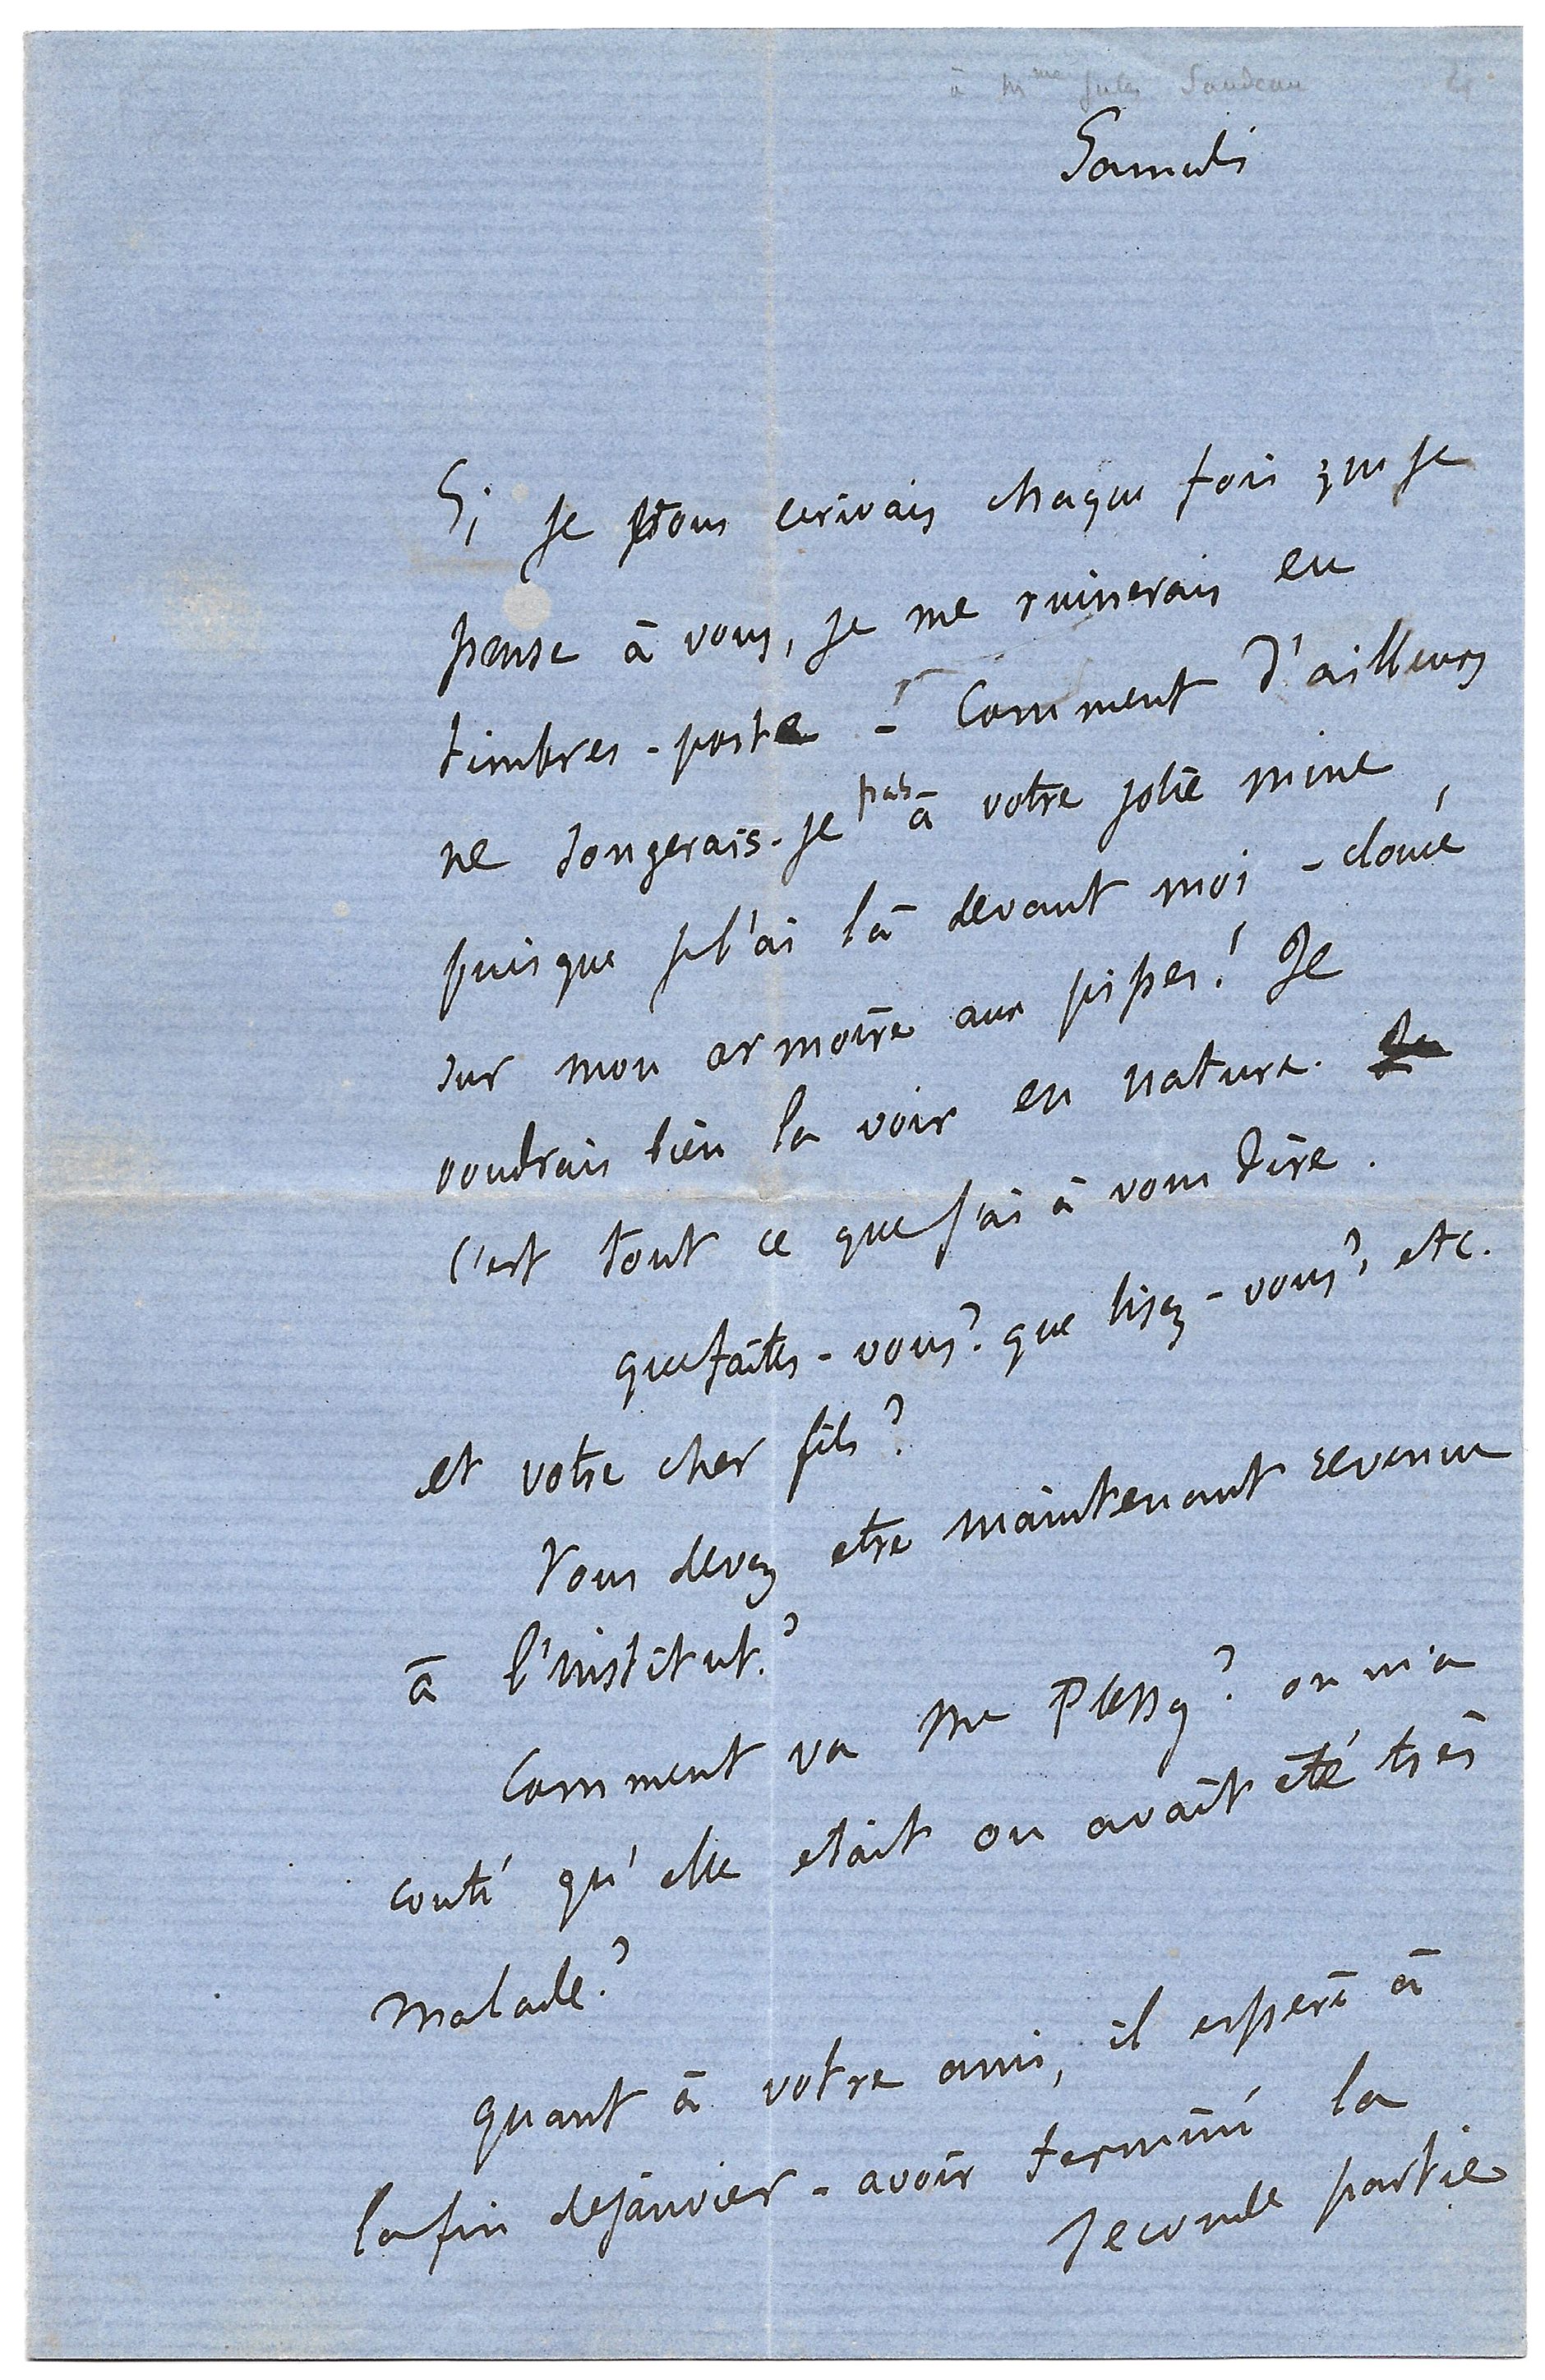 à Mme Jules Sandeau
Samedi
Si je vous ecrivais chaque fois que je
pense à vous, je me ruinerais en
timbres-poste - Comment d'ailleurs
ne songerais-je pas à votre jolie mine
puisque je l'ai là devant moi - clouée
sur mon armoire aux pipes! Je
voudrais bien la voir en nature. Je
c'est tout ce que j'ai à vous dire.
que faites-vous? que lisez-vous? etc.
et votre cher fils?
Vous devez etre maintenant revenue
à l'institut?
Comment va Me Plessy? on m'a
conté qu'elle etait ou avait été très
malade?
quant à votre ami, il espère à
la fin de janvier - avoir terminé la
seconde partie